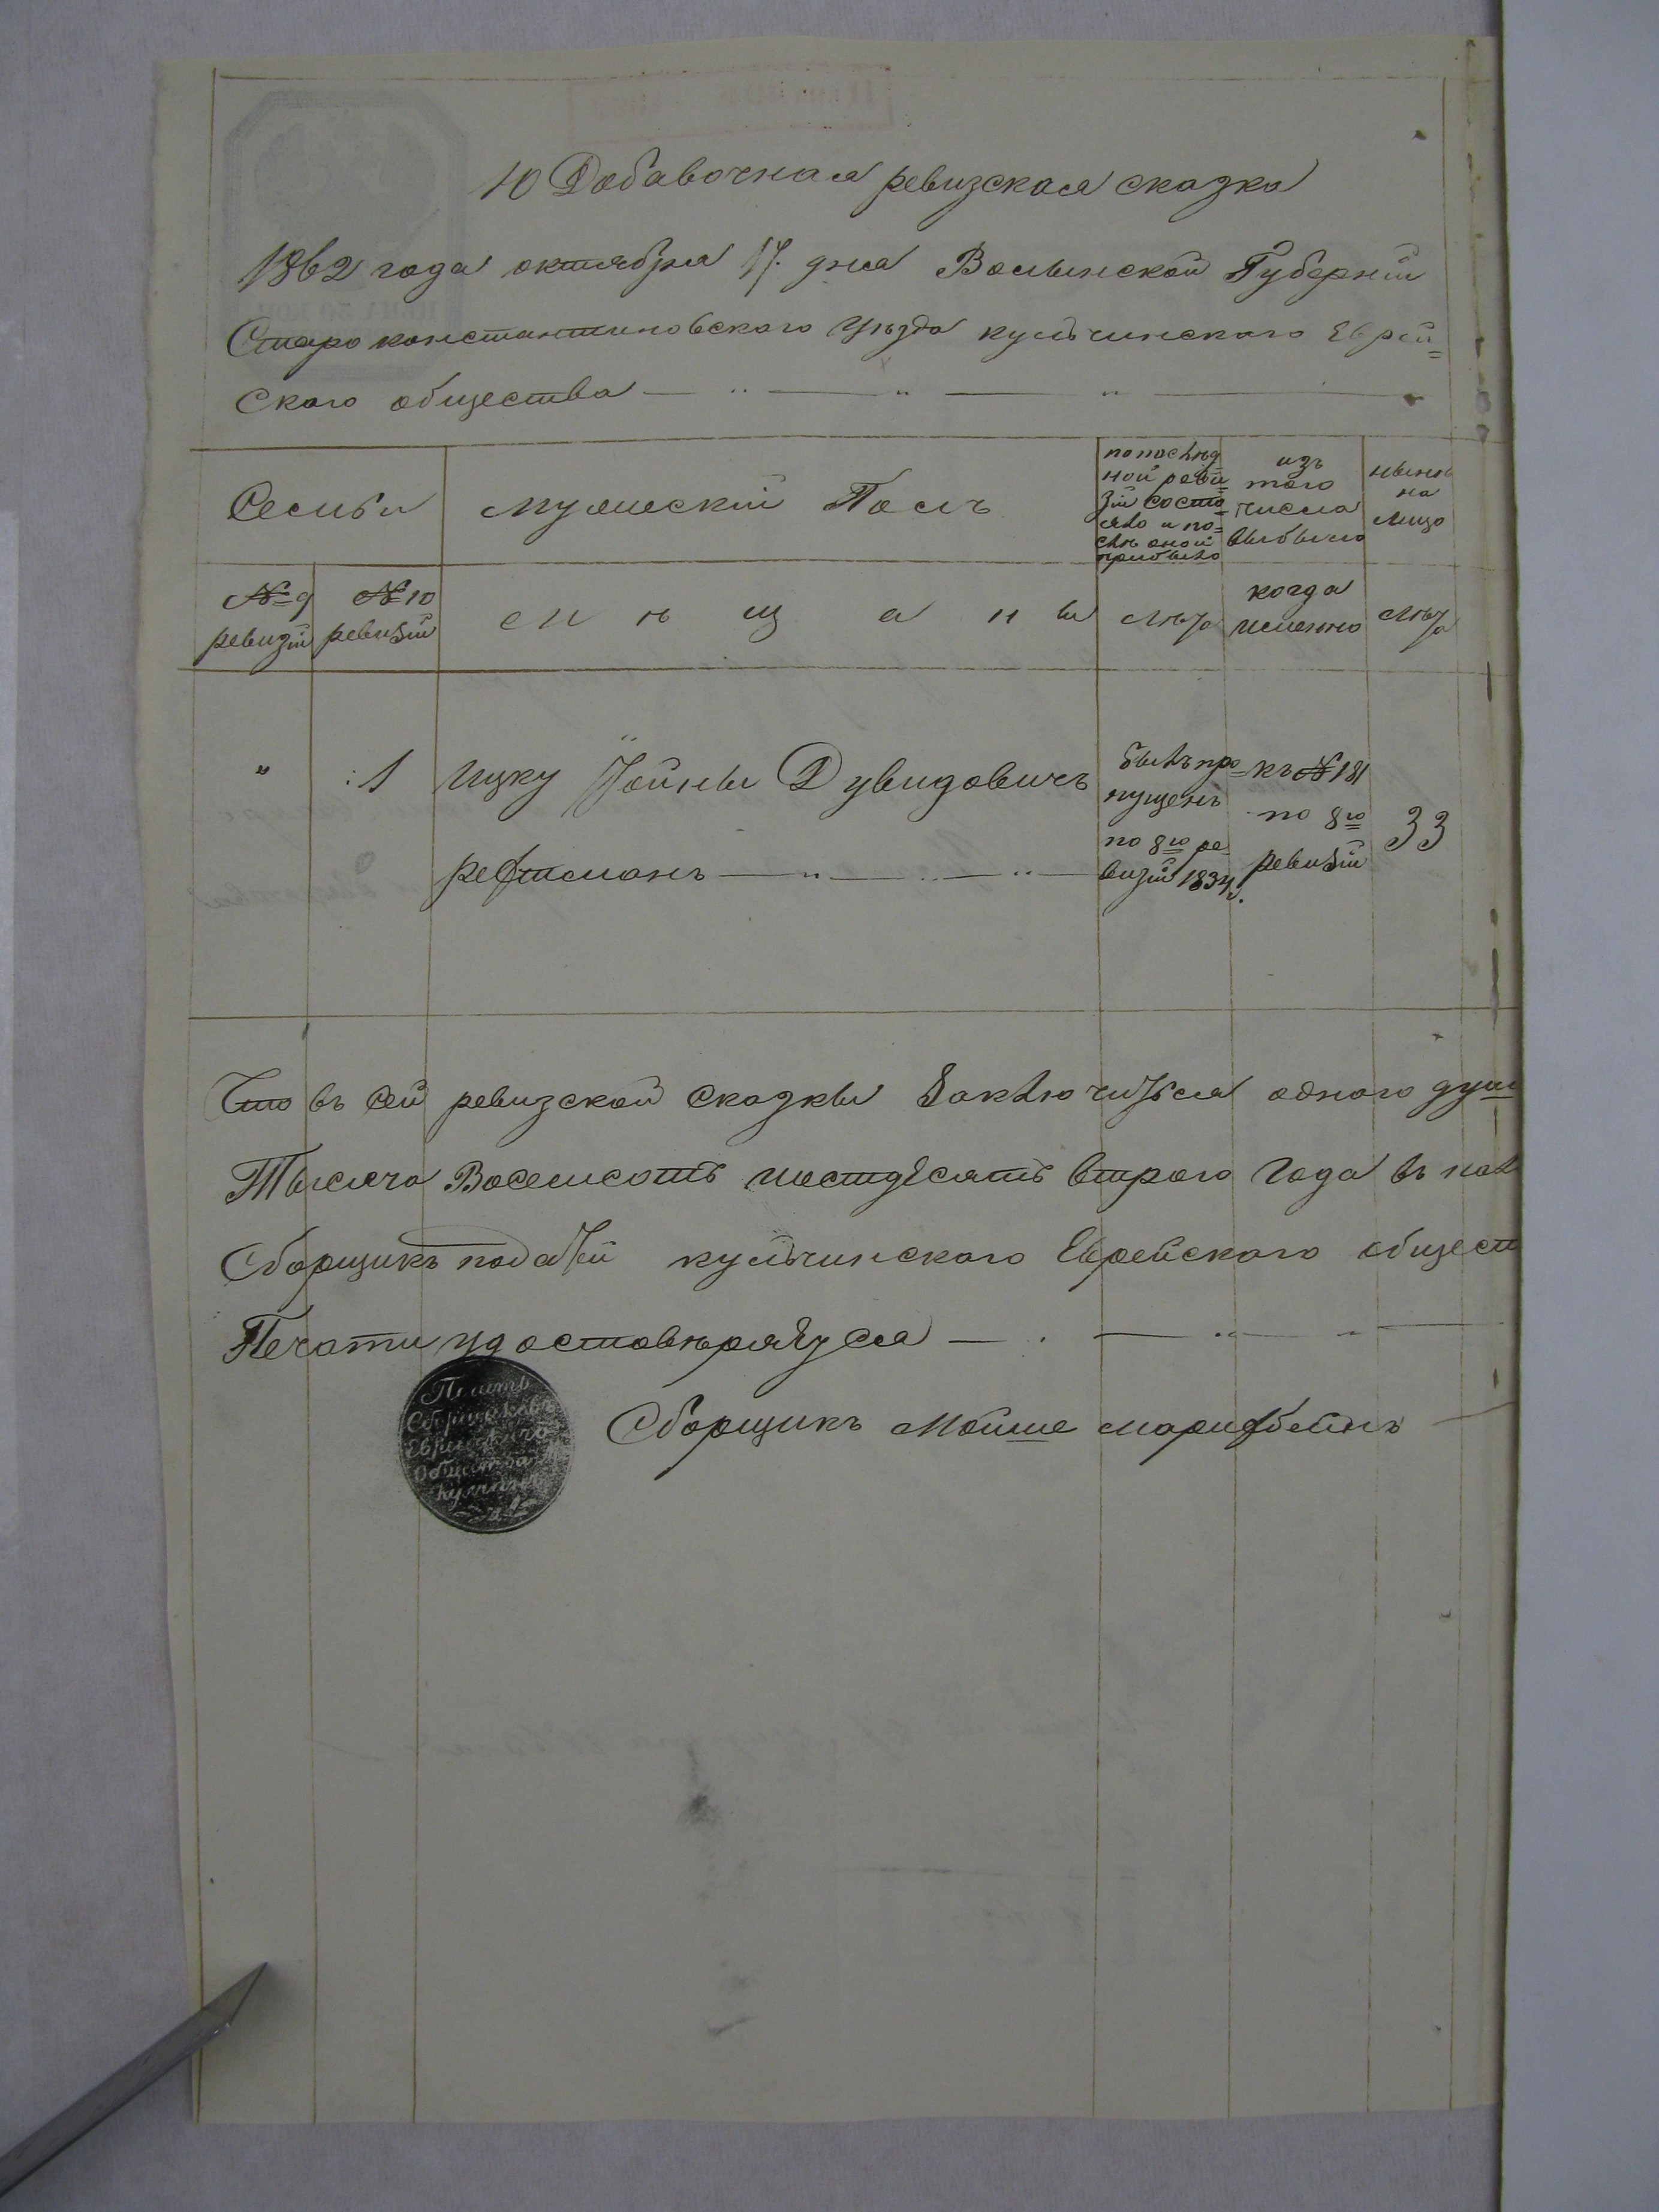 10 Добавочная ревизская сказка
1862 года октября 17. дня Волынской Губерніи
Старо константиновского уѣзда кульчинского Еврей=
ского общества
Семьи
мужескій Полъ
по послѣд=
ной реви=
зіи состо=
яло и по=
слѣ оной
прибыло
изъ
того
числа
выбыло
нынѣ
на
лицо
№ 9
ревизіи
№ 10
ревизіи
м ѣ щ а н ы
лѣта
когда
именно
лѣта
" 1 Ицку Іойны Дувидовичъ
рефтманъ
былъ про=
пущенъ
по 8ю ре
визіи 1834г.
къ № 181
по 8ю
ревизіи
33
Что въ сей ревизской сказкы заключится одного душ
Тысяча Восемсотъ шестдесятъ втрого года въ
Сборщикъ податей кульчинского Еврейского общест
Печати удостовѣряуся
Печать
Сборщиковъ
Еврейского
Общества
Сборщикъ Мойше